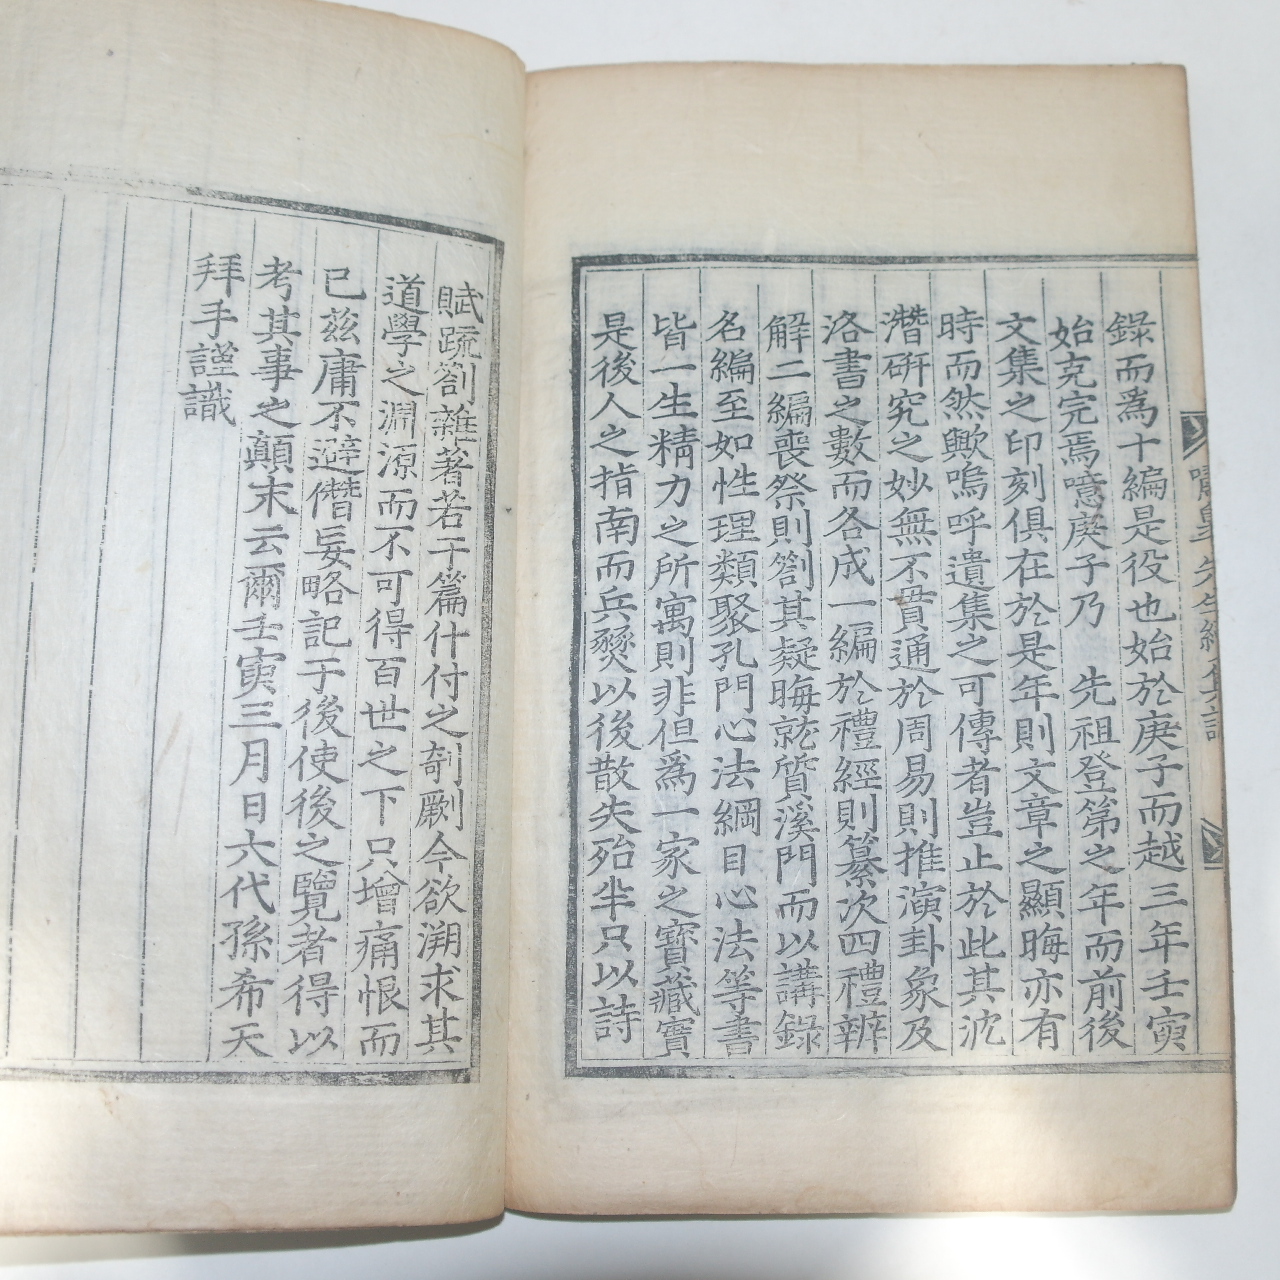 錄而爲十編是役也始於庚子而越三年壬寅
始克完焉噫庚子乃 先祖登第之年而前後
文集之印刻俱在於是年則文章之顯晦亦有
時而然歟嗚呼遺集之可傳者豈止於此其沈
潛硏究之妙無不貫通於周易則推演卦象及
洛書之數而各成一編於禮經則纂次四禮辨
解二編喪祭則劄其疑晦就質溪門而以講錄
名編至如性理類聚孔門心法綱目心法等書
皆一生精力之所寓則非但爲一家之寶藏實
是後人之指南而兵燹以後散失殆半只以詩
賦疏劄雜著若干篇什付之剞劂今欲溯求其
道學之淵源而不可得百世之下只增痛恨而
已玆庸不避僭妄略記于後使後之覽者得以
考其事之顚末云爾壬寅三月日六代孫希天
拜手謹識